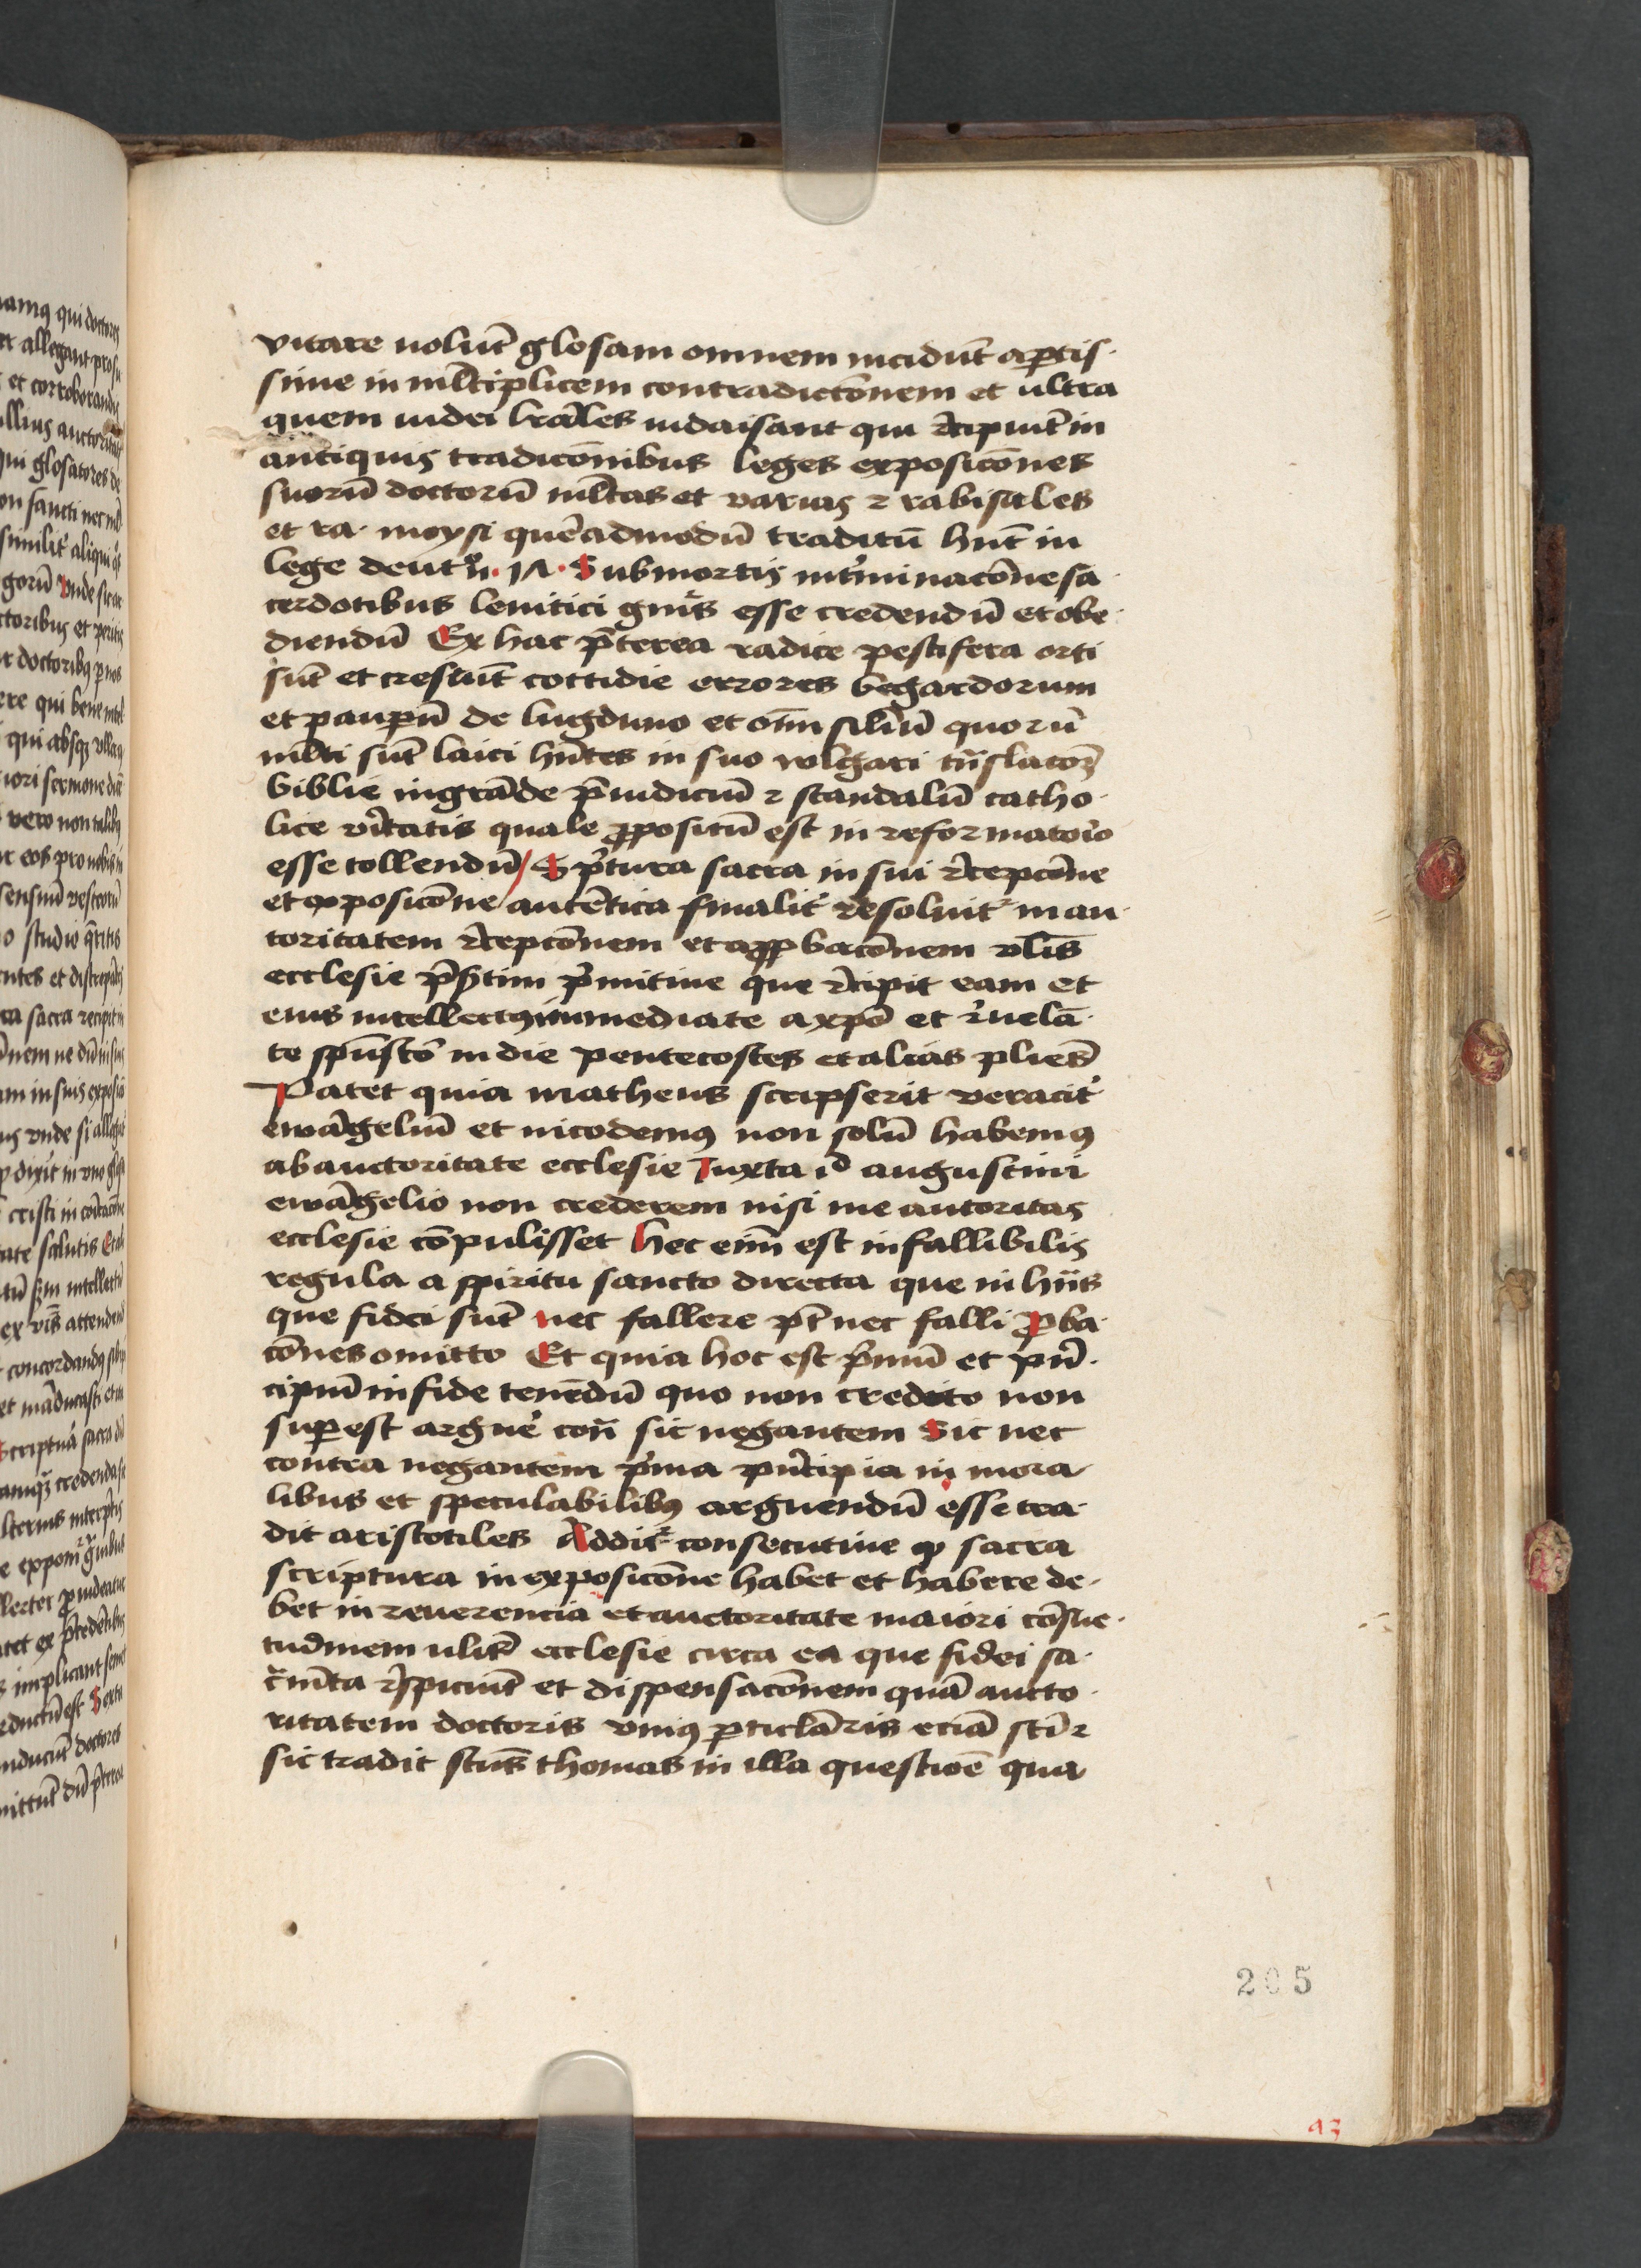 vitare nolūt glosam omnem incidūt aꝑtis-
sime in ml̄tiplicem contradictōnem et ultra
quem iudei lr̄ales iudaisant qui rēcipiūt in
antiquis tradicōnibus leges exposicōnes
suorū doctorū ml̄tas et varias ⁊ rabi sales
et ra. moysi quēadmodū traditū hn̄t in
lege deutro͞n. 17. Sub mortis int͛minacōne sa
cerdotibus leuitici gn͛is esse credendū et obe-
diendū Ex hac p̄terea radice pestifera orti
sūt et cresūt cottidie errores begardorum
et pauꝑū de lugduno et om̄ silīū quorū
ml̄ti sūt laici hn̄tes in suo wlgari tn̄slatōꝫ
biblie in grāde p̄iudiciū ⁊ scandalū catho-
lice v͛itatis quale ꝓpositū est in reformatorio
esse tollendū Sc͛ptura sacra in sui rēcepcōne
et exposicōne autētica finalit͛ resoluit͛ in au-
toritatem rēceptōnem et apꝓbacōnem vl̄is
ecclesie p̄s͛tim p͛mitiue que rēcipit eam et
eius intellectꝰ inmediate a xp̄o et r͛uelā-
te sp̄ūsctō in die pentecostes et alias pl̄ies
Patet quia matheus scripserit veracit͛
ewāgeliū et nicodemꝰ non solū habemꝰ
ab auctoritate ecclesie Iuxta id augustini
ewāgelio non crederem nisi me autoritas
ecclesie cōpulisset Hec eni͞m est infallibilis
regula a spiritu sancto directa que in hiis
que fidei sūt nec fallere pt̄ nec falli Ꝓba
cōnes omitto Et quia hoc est p͛mū et pn͛-
cipiū in fide tenēdū quo non credito non
suꝑest arguer͛ con͞ sic negantem Sic nec
contra negantem p͛ma pn͛cipia in mora
libus et speculabilibꝰ arguendū esse tra-
dit aristotiles Addit͛ consecutiue ꝙ sacra
scriptura in exposicōne habet et habere de-
bet in reuerencia et auctoritate maiori cōsue-
tudinem ulīs ecclesie circa ea que fidei sa-
c͛mēta r͛spiciūt et dispensacōnem quā aucto-
ritatem doctoris vniꝰ ꝑticlāris eciā sti͞ ⁊
sic tradit sctu͞s thomas in illa questiōe qua
205